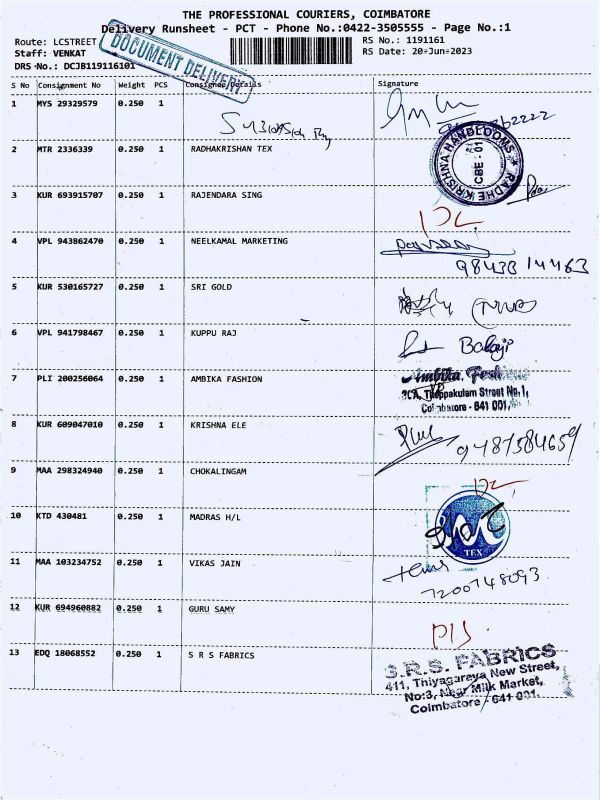 THE PROFESSIONAL COURIERS, COIMBATORE
Delivery Runsheet - PCT - Phone No.:0422-3505555 - Page No.:1
Route: LCSTREET RS No.: 1191161
Staff: VENKAT RS Date: 20-Jun-2023
DRS No.: DCJB119116101
DOCUMENT DELIVERY
S No Consignment No Weight PCS Consignee Details Signature
1 MYS 29329579 0.250 1
2 MTR 2336339 0.250 1 RADHAKRISHAN TEX
RADHE KRISHNA HANDLOOMS
CBE - 01
3 KUR 693915707 0.250 1 RAJENDARA SING
DL
4 VPL 943862470 0.250 1 NEELKAMAL MARKETING
98433 14463
5 KUR 530165727 0.250 1 SRI GOLD
6 VPL 941798467 0.250 1 KUPPU RAJ
Balaji
7 PLI 200256064 0.250 1 AMBIKA FASHION
Ambika Fashion
Theppakulam Street No.1,
Coimbatore - 641 001.
8 KUR 609047010 0.250 1 KRISHNA ELE
9487584659
9 MAA 298324940 0.250 1 CHOKALINGAM
DL
10 KTD 430481 0.250 1 MADRAS H/L
TEX
11 MAA 103234752 0.250 1 VIKAS JAIN
7200748093
12 KUR 694960882 0.250 1 GURU SAMY
13 EDQ 18068552 0.250 1 S R S FABRICS
S.R.S. FABRICS
411, Thiyagaraya New Street,
No:3, Near Milk Market,
Coimbatore - 641 001.